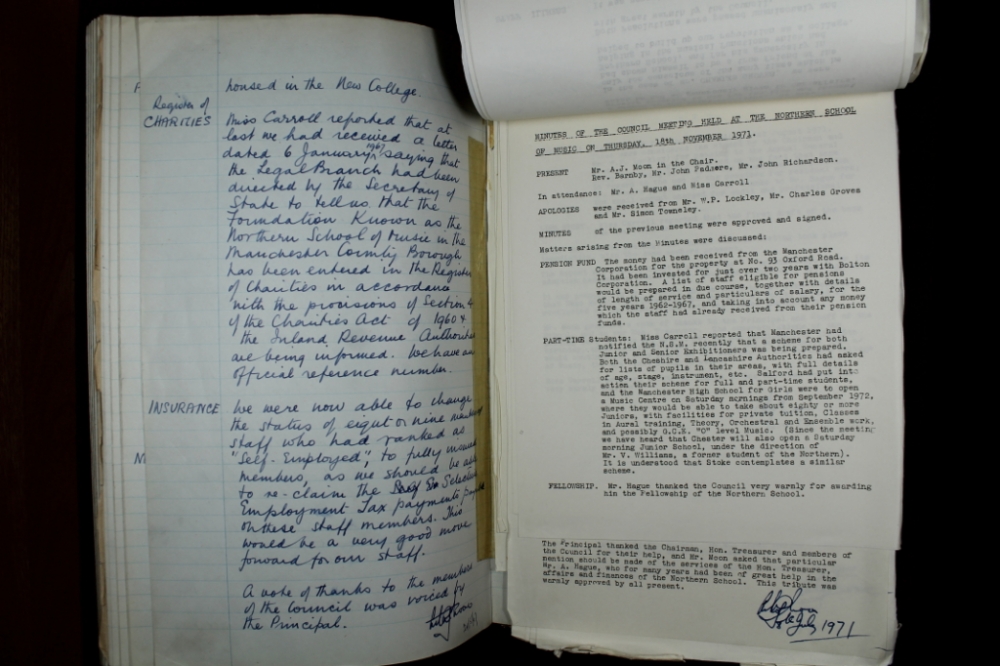 housed in the New College.
Register of
CHARITIES
Miss Carroll reported that at
last we had received a letter
dated 6 January, 1967 saying that
the Legal Branch had been
directed by the Secretary of
State to tell us that the
Foundation Known as the
Northern School of Music in the
Manchester County Borough
has been entered in the Register
of Charities in accordance
with the provisions of Section 4
of the Charities Act of 1960 &
the Inland Revenue Authorities
are being informed. We have an
official reference number.
INSURANCE
We were now able to change
the status of eight or nine
staff who had ranked as
"Self-Employed", to fully insured
members, as we should be able
to re-claim the Selective
Employment Tax payments
on these staff members. This
would be a very good move
forward for our staff.
A vote of thanks to the members
of the Council was voiced by
the Principal.
MINUTES OF THE COUNCIL MEETING HELD AT THE NORTHERN SCHOOL
OF MUSIC ON THURSDAY, 18th NOVEMBER 1971.
PRESENT Mr. A.J. Moon in the Chair.
Rev. Barnby, Mr. John Padmore, Mr. John Richardson.
In attendance: Mr. A. Hague and Miss Carroll
APOLOGIES were received from Mr. W.P. Lockley, Mr. Charles Groves
and Mr. Simon Towneley.
MINUTES of the previous meeting were approved and signed.
Matters arising from the Minutes were discussed:
PENSION FUND The money had been received from the Manchester
Corporation for the property at No. 93 Oxford Road.
It had been invested for just over two years with Bolton
Corporation. A list of staff eligible for pensions
would be prepared in due course, together with details
of length of service and particulars of salary, for the
five years 1962-1967, and taking into account any money
which the staff had already received from their pension
funds.
PART-TIME Students: Miss Carroll reported that Manchester had
notified the N.S.M. recently that a scheme for both
Junior and Senior Exhibitioners was being prepared.
Both the Cheshire and Lancashire Authorities had asked
for lists of pupils in their areas, with full details
of age, stage, instrument, etc. Salford had put into
action their scheme for full and part-time students,
and the Manchester High School for Girls were to open
a Music Centre on Saturday mornings from September 1972,
where they would be able to take about eighty or more
Juniors, with facilities for private tuition, Classes
in Aural training, Theory, Orchestral and Ensemble work,
and possibly G.C.E. "O" level Music. (Since the meeting
we have heard that Chester will also open a Saturday
morning Junior School, under the direction of
Mr. V. Williams, a former student of the Northern).
It is understood that Stoke contemplates a similar
scheme.
FELLOWSHIP. Mr. Hague thanked the Council very warmly for awarding
him the Fellowship of the Northern School.
The Principal thanked the Chairman, Hon. Treasurer and members of
the Council for their help, and Mr. Moon asked that particular
mention should be made of the services of the Hon. Treasurer,
Mr. A. Hague, who for many years had been of great help in the
affairs and finances of the Northern School. This tribute was
warmly approved by all present.
July 1971